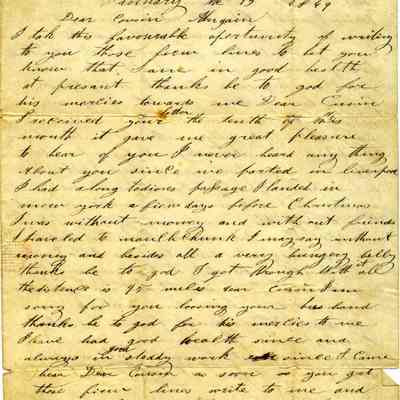 the 19 1849
Dear Cousin
I tak this favourable oportunity of writing
to you those fieu lines to let you
know that I am in good health
at presant thanks be to god for
his mercies towards me Dear Cousin
I received your letter the tenth of this
month it gave me great pleasure
to hear of you I never heard any thing
About you since we parted in liverpool
I had a long tedious passage I landed in
new york a fieu days before Christmas
I was without money and without friends
I haveled to mauch chunk I may say without
money and besides all a very hungery belly
thanks be to god I got through it all
the distance is 95 miles dear Cousin I am
sorry for you loosing your husband
thanks be to god for his mercies to me
I have had good health since and
always in good steddy work since I Came
hear Dear Cousin as soon as you get
those fieu lines write to me and